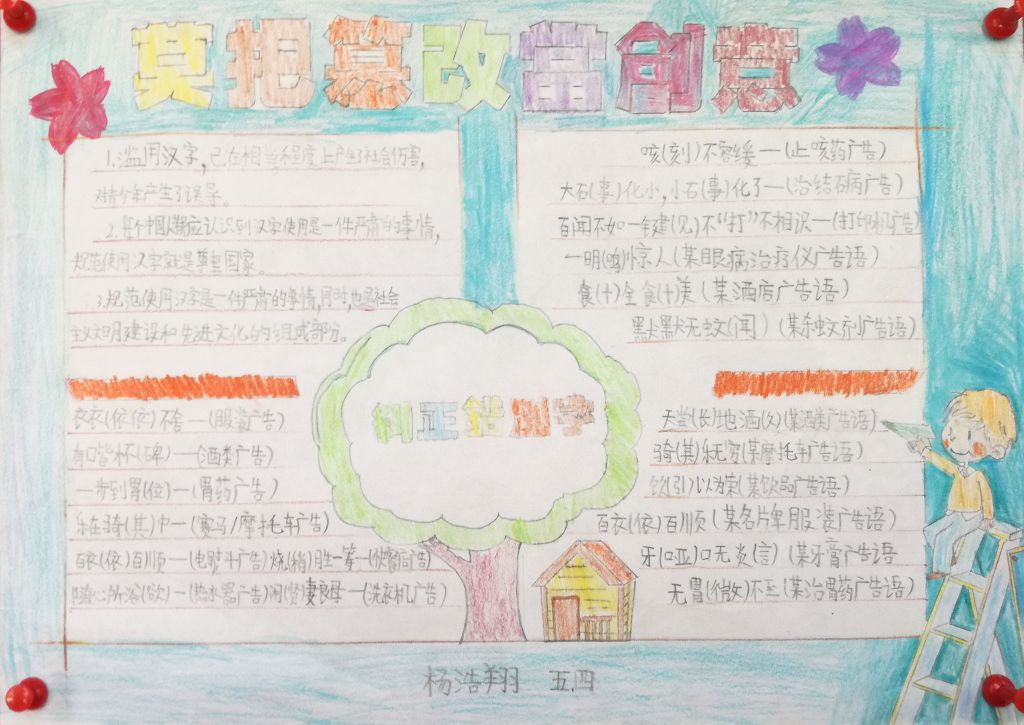 莫把篡改当创意
1.滥用汉字,已在相当程度上产生了社会伤害,
对青少年产生了误导。
2.每个中国人都应认识到汉字使用是一件严肃的事情,
规范使用汉字就是尊重国家。
3.规范使用汉字是一件严肃的事情,同时,也是社会
主义文明建设和先进文化的组成部分。
咳(刻)不容缓—(止咳药广告)
大石(事)化小,小石(事)化了—(治结石病广告)
百闻不如一键(见)不“打”不相识—(打印机广告)
一明(鸣)惊人(某眼病治疗仪广告语)
食(十)全食(十)美(某酒店广告语)
默默无蚊(闻)(某杀蚊剂广告语)
纠正错别字
衣衣(依依)不舍—(服装广告)
有口皆杯(碑)—(酒类广告)
一步到胃(位)—(胃药广告)
乐在骑(其)中—(赛马/摩托车广告)
百衣(依)百顺—(电熨斗广告)烧(稍)胜一筹—(快餐店广告)
随心所浴(欲)—(热水器广告)闲(贤)妻良母—(洗衣机广告)
天尝(长)地酒(久)(某酒类广告语)
骑(其)乐无穷(某摩托车广告语)
饮(引)以为荣(某饮品广告语)
百衣(依)百顺(某名片牌服装广告语)
牙(哑)口无炎(言)(某牙膏广告语
无胃(微)不至(某治胃药广告语)
杨浩翔 五.四